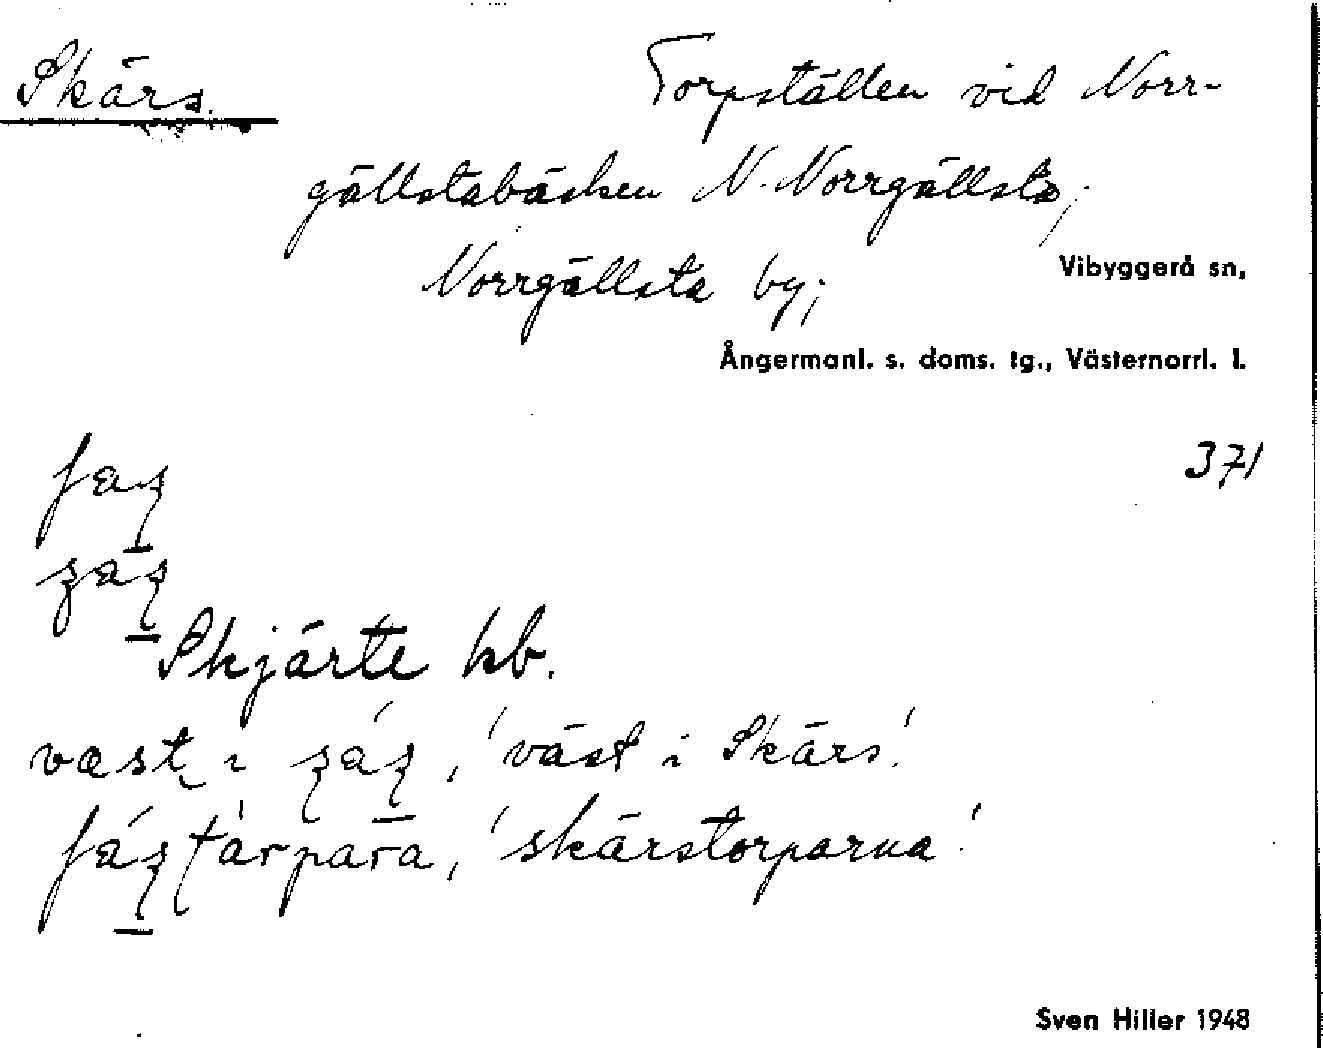 Skärs.
Torpställen vid Norr-
gällstabäcken N. Norrgällsta,
Norrgällsta by;
Vibyggerå sn,
Ångermanl. s. doms. tg., Västernorrl. l.
371
Skjärte hb.
i 'väst i Skärs'.
'skärstorparna'.
Sven Hiller 1948